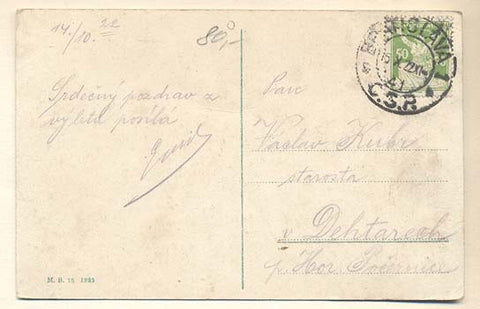 14./10. 22
80,-
Srdečný pozdrav z
výletu posílá
BRATISLAVA 1
50
15 X 22
Č.S.P.
Pan
Václav Kubr
starosta
v Dehtarech
p. Hor.
M. B. 15 1985